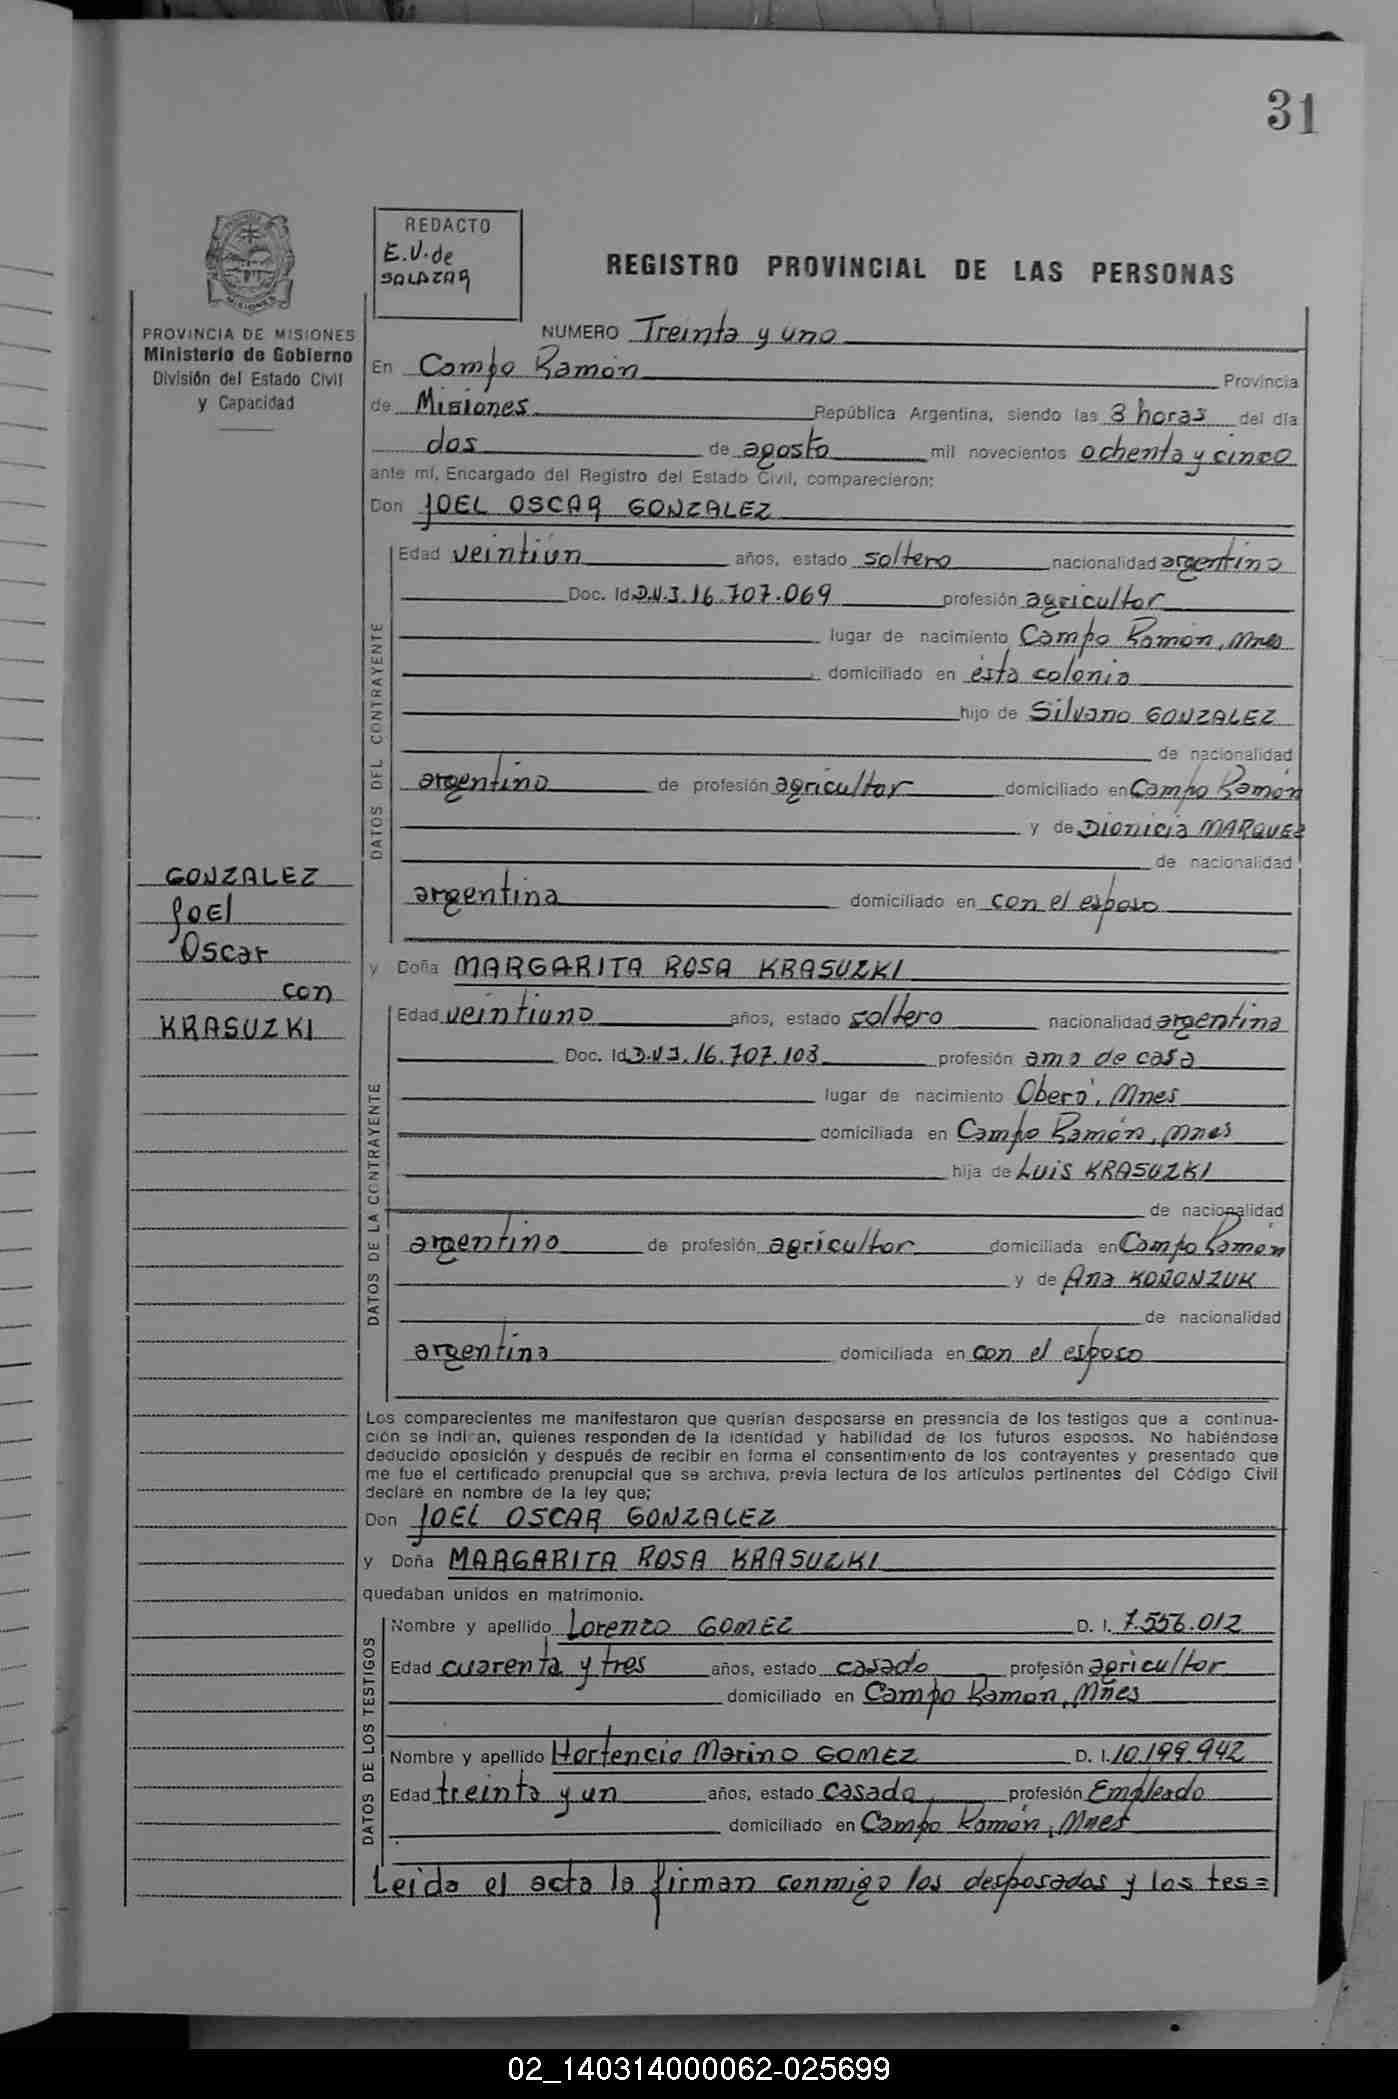 31
REDACTO
E.V. de
SALAZAR
REGISTRO PROVINCIAL DE LAS PERSONAS
PROVINCIA DE MISIONES
Ministerio de Gobierno
División del Estado Civil
y Capacidad
NUMERO Treinta y uno
En Campo Ramón Provincia
de Misiones República Argentina, siendo las 8 horas del día
dos de agosto mil novecientos ochenta y cinco
ante mí, Encargado del Registro del Estado Civil, comparecieron:
Don JOEL OSCAR GONZALEZ
DATOS DEL CONTRAYENTE
Edad veintiún años, estado soltero nacionalidad argentino
Doc. Id D.N.I. 16.707.069 profesión agricultor
lugar de nacimiento Campo Ramón, Mnes
domiciliado en ésta colonia
hijo de Silvano GONZALEZ
de nacionalidad
argentino de profesión agricultor domiciliado en Campo Ramón
y de Dionicia MARQUEZ
de nacionalidad
argentina domiciliado en con el esposo
GONZALEZ
Joel
Oscar
con
KRASUZKI
y Doña MARGARITA ROSA KRASUZKI
DATOS DE LA CONTRAYENTE
Edad veintiuno años, estado soltero nacionalidad argentina
Doc. Id D.N.I. 16.707.103 profesión ama de casa
lugar de nacimiento Oberá, Mnes
domiciliada en Campo Ramón, Mnes
hija de Luis KRASUZKI
de nacionalidad
argentino de profesión agricultor domiciliada en Campo Ramón
y de Ana
de nacionalidad
argentina domiciliada en con el esposo
Los comparecientes me manifestaron que querían desposarse en presencia de los testigos que a continua-
ción se indican, quienes responden de la identidad y habilidad de los futuros esposos. No habiéndose
deducido oposición y después de recibir en forma el consentimiento de los contrayentes y presentado que
me fue el certificado prenupcial que se archiva, previa lectura de los artículos pertinentes del Código Civil
declaré en nombre de la ley que;
Don JOEL OSCAR GONZALEZ
y Doña MARGARITA ROSA KRASUZKI
quedaban unidos en matrimonio.
DATOS DE LOS TESTIGOS
Nombre y apellido Lorenzo GOMEZ D. I. 7.556.012
Edad cuarenta y tres años, estado casado profesión agricultor
domiciliado en Campo Ramón, Mñes
Nombre y apellido Hortencio Marino GOMEZ D. I. 10.199.942
Edad treinta y un años, estado casado, profesión Empleado
domiciliado en Campo Ramón, Mnes
Leída el acta la firman conmigo los desposados y los tes=
02_140314000062-025699